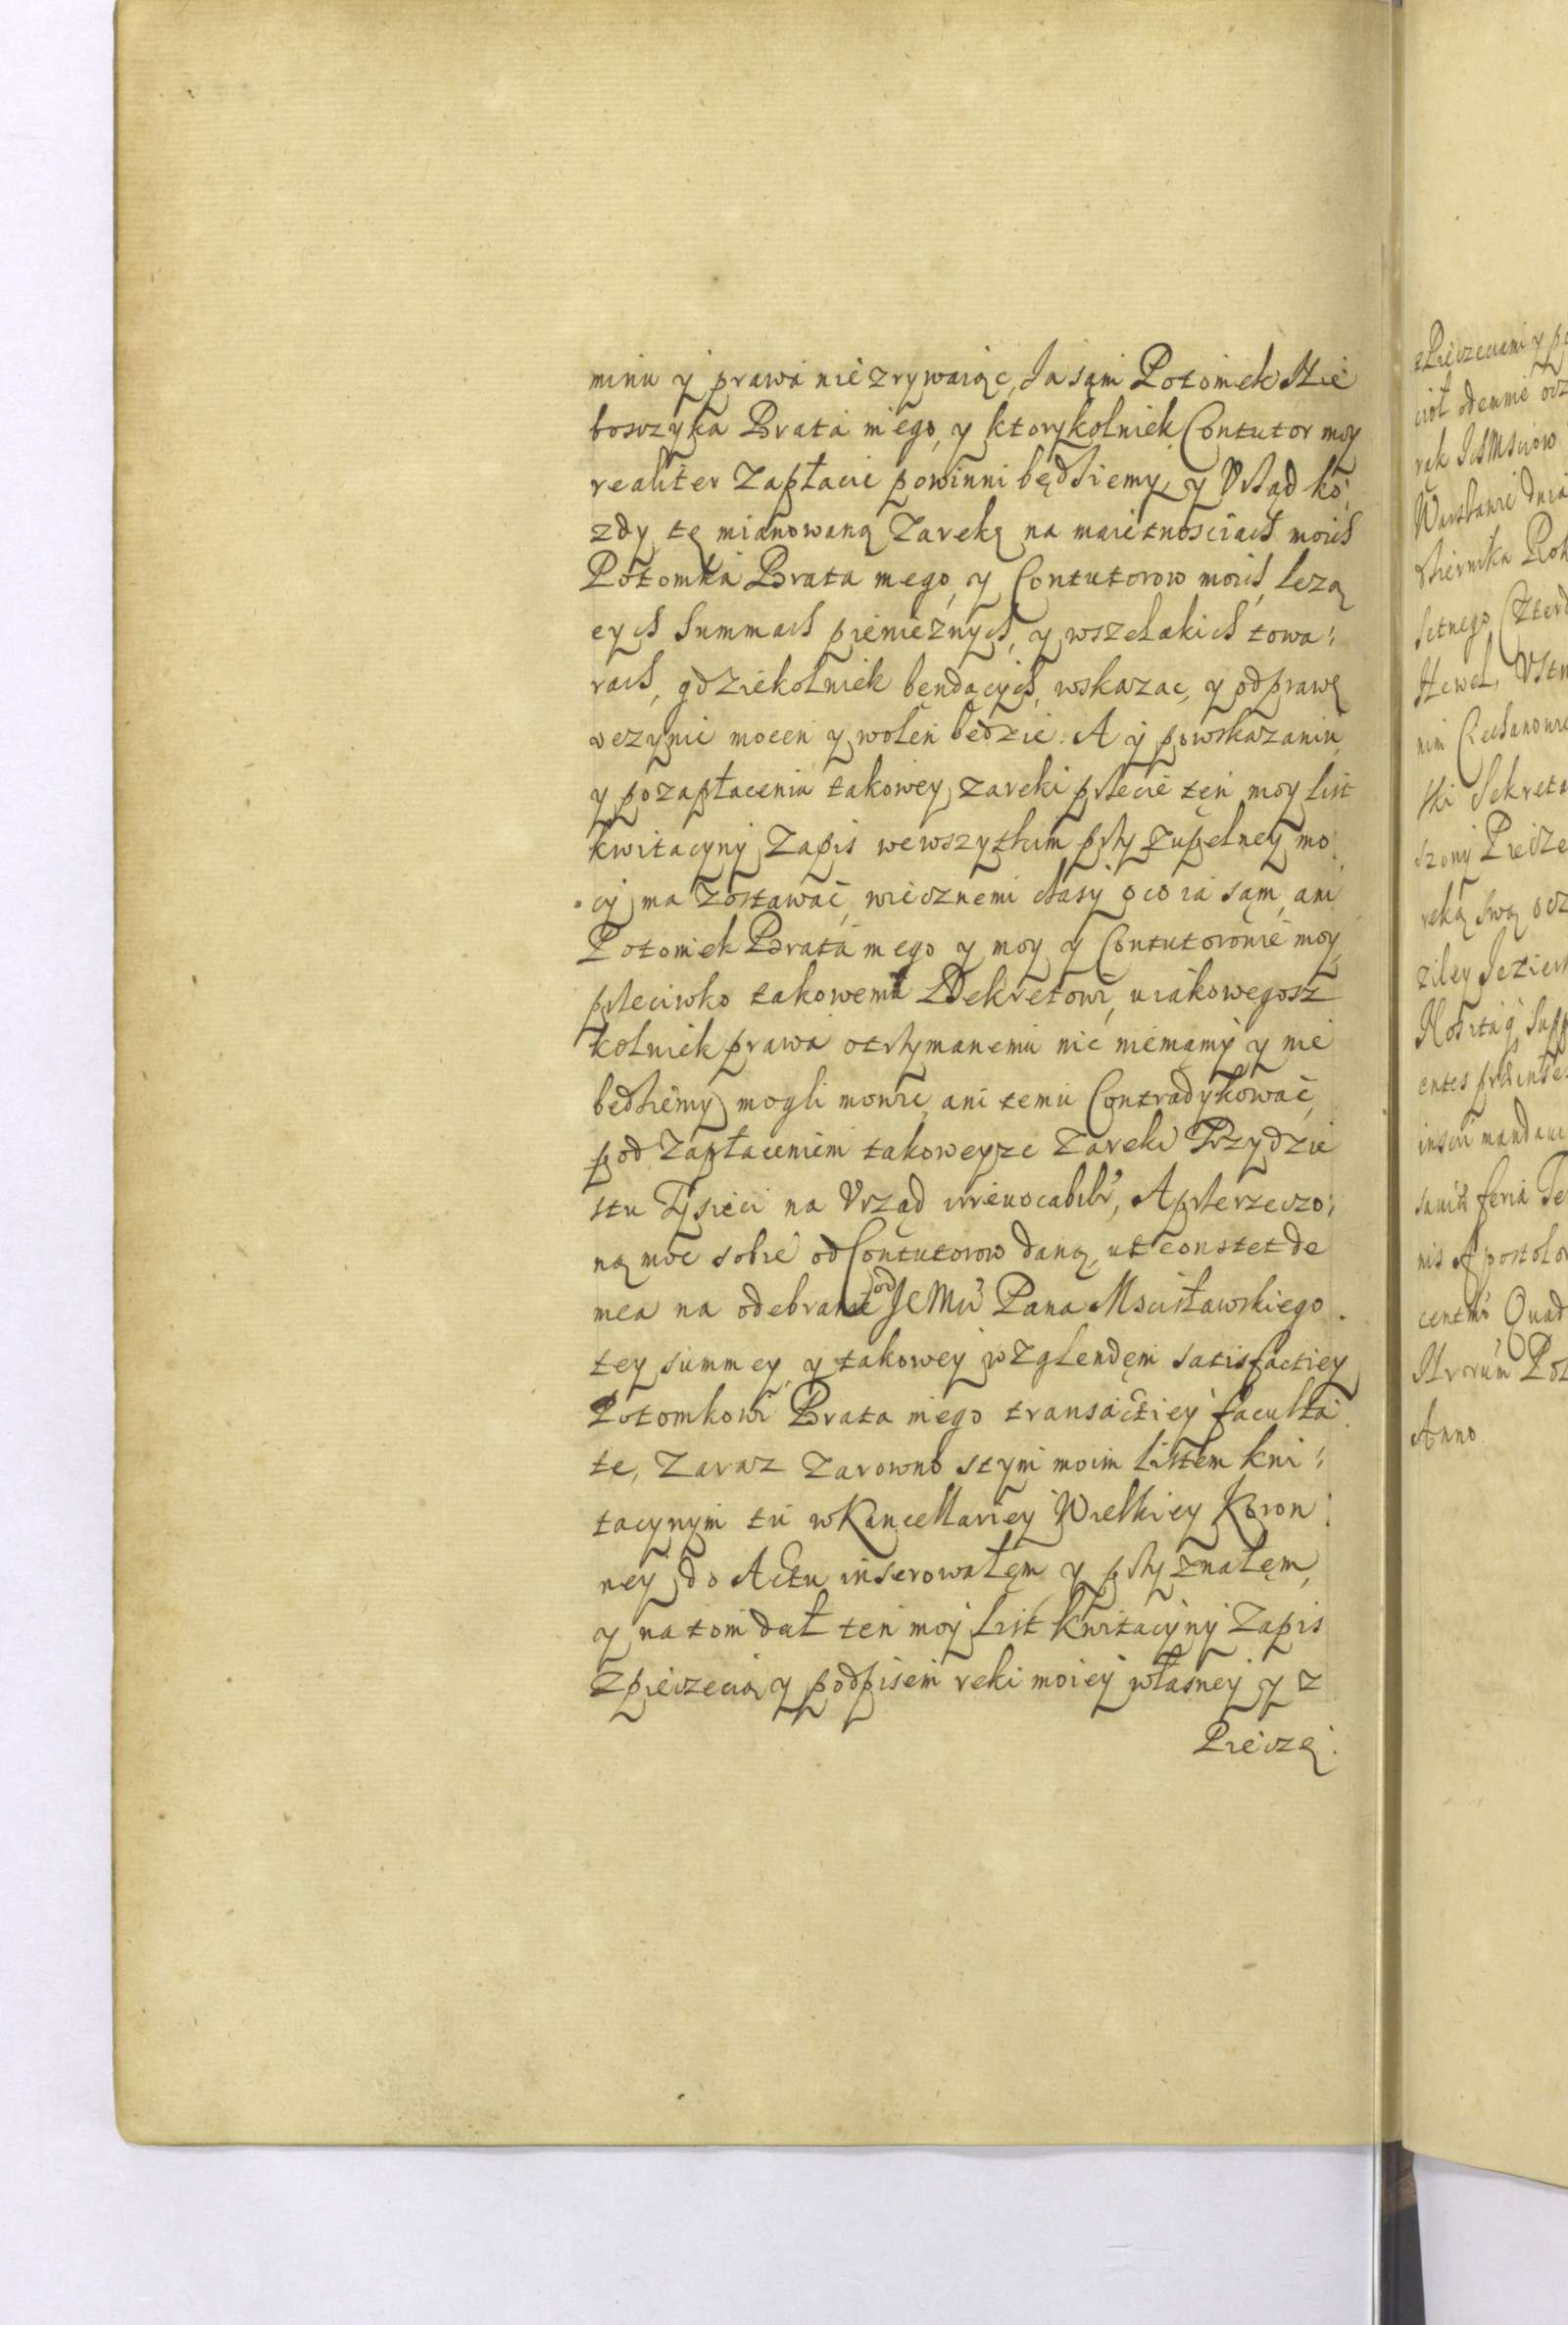 minu y prawa nie zrywaiąc, Ja sąm Potomek Nie
boszzyka Brata mego, y ktorykolwiek Contutor moy
realiter zapłacic powinni będziemy, y Vrząd ko
zdy tę mianowaną Zarękę na maietnosciach moich
Potomka Brata mego, y Contutorow moich, lezą
cych Summach pienieznych, y wszelakich towa:
rach, gdziekolwiek bendących, wskazac, y odprawę
vczynic mocen y wolen bedzie. A y powskazaniu
y pozapłaceniu takowey zareki przecie ten moy list
kwitacyny Zapis wewszytkim przy zupełney mo
cy ma zostawać, wiecznemi czasy o co ia sąm, ani
Potomek Brata mego y moy y Contutorowie moy
przeciwko takowemu Dekretowi, u iakowegosz
kolwiek prawa otrzymanemu nic niemamy y nie
bedziemy mogli mowic, ani temu Contradykować,
pod Zapłaceniem takoweyze Zareki Trzydzie
stu Tysieci na Vrząd irreuocabilr, A przerzeczo:
ną moc sobie od Contutorow daną, ut constet de
mea na odebranie od JE Mci Pana Mscisławskiego
tey summey, y takowey wzglendęm satisfactiey
Potomkowi Brata mego transactiey faculta
te, Zaraz Zarowno stym moim Listem kwi:
tacynym tu w Kancellariey Wielkiey Koron
ney do Actu inserowałęm y przyznałęm,
y na tom dał ten moy List kwitacyny Zapis
Zpieczecią y podpisem reki moiey własney y z
Pieczę:
zPieczeciami y po
cioł odemnie ocz
rak IchMsciow
Warszawie dnia
dziernika Rok
setnego Czterd
Hewel, Vstn
nim Ciechanowie
ski Sekreta
szony Piecze
reką swą ocz
ziley Jezier
entes
insuu mandaui
feria Te
nis Apostolor
centmo Quad
Nrorum Pol
Anno